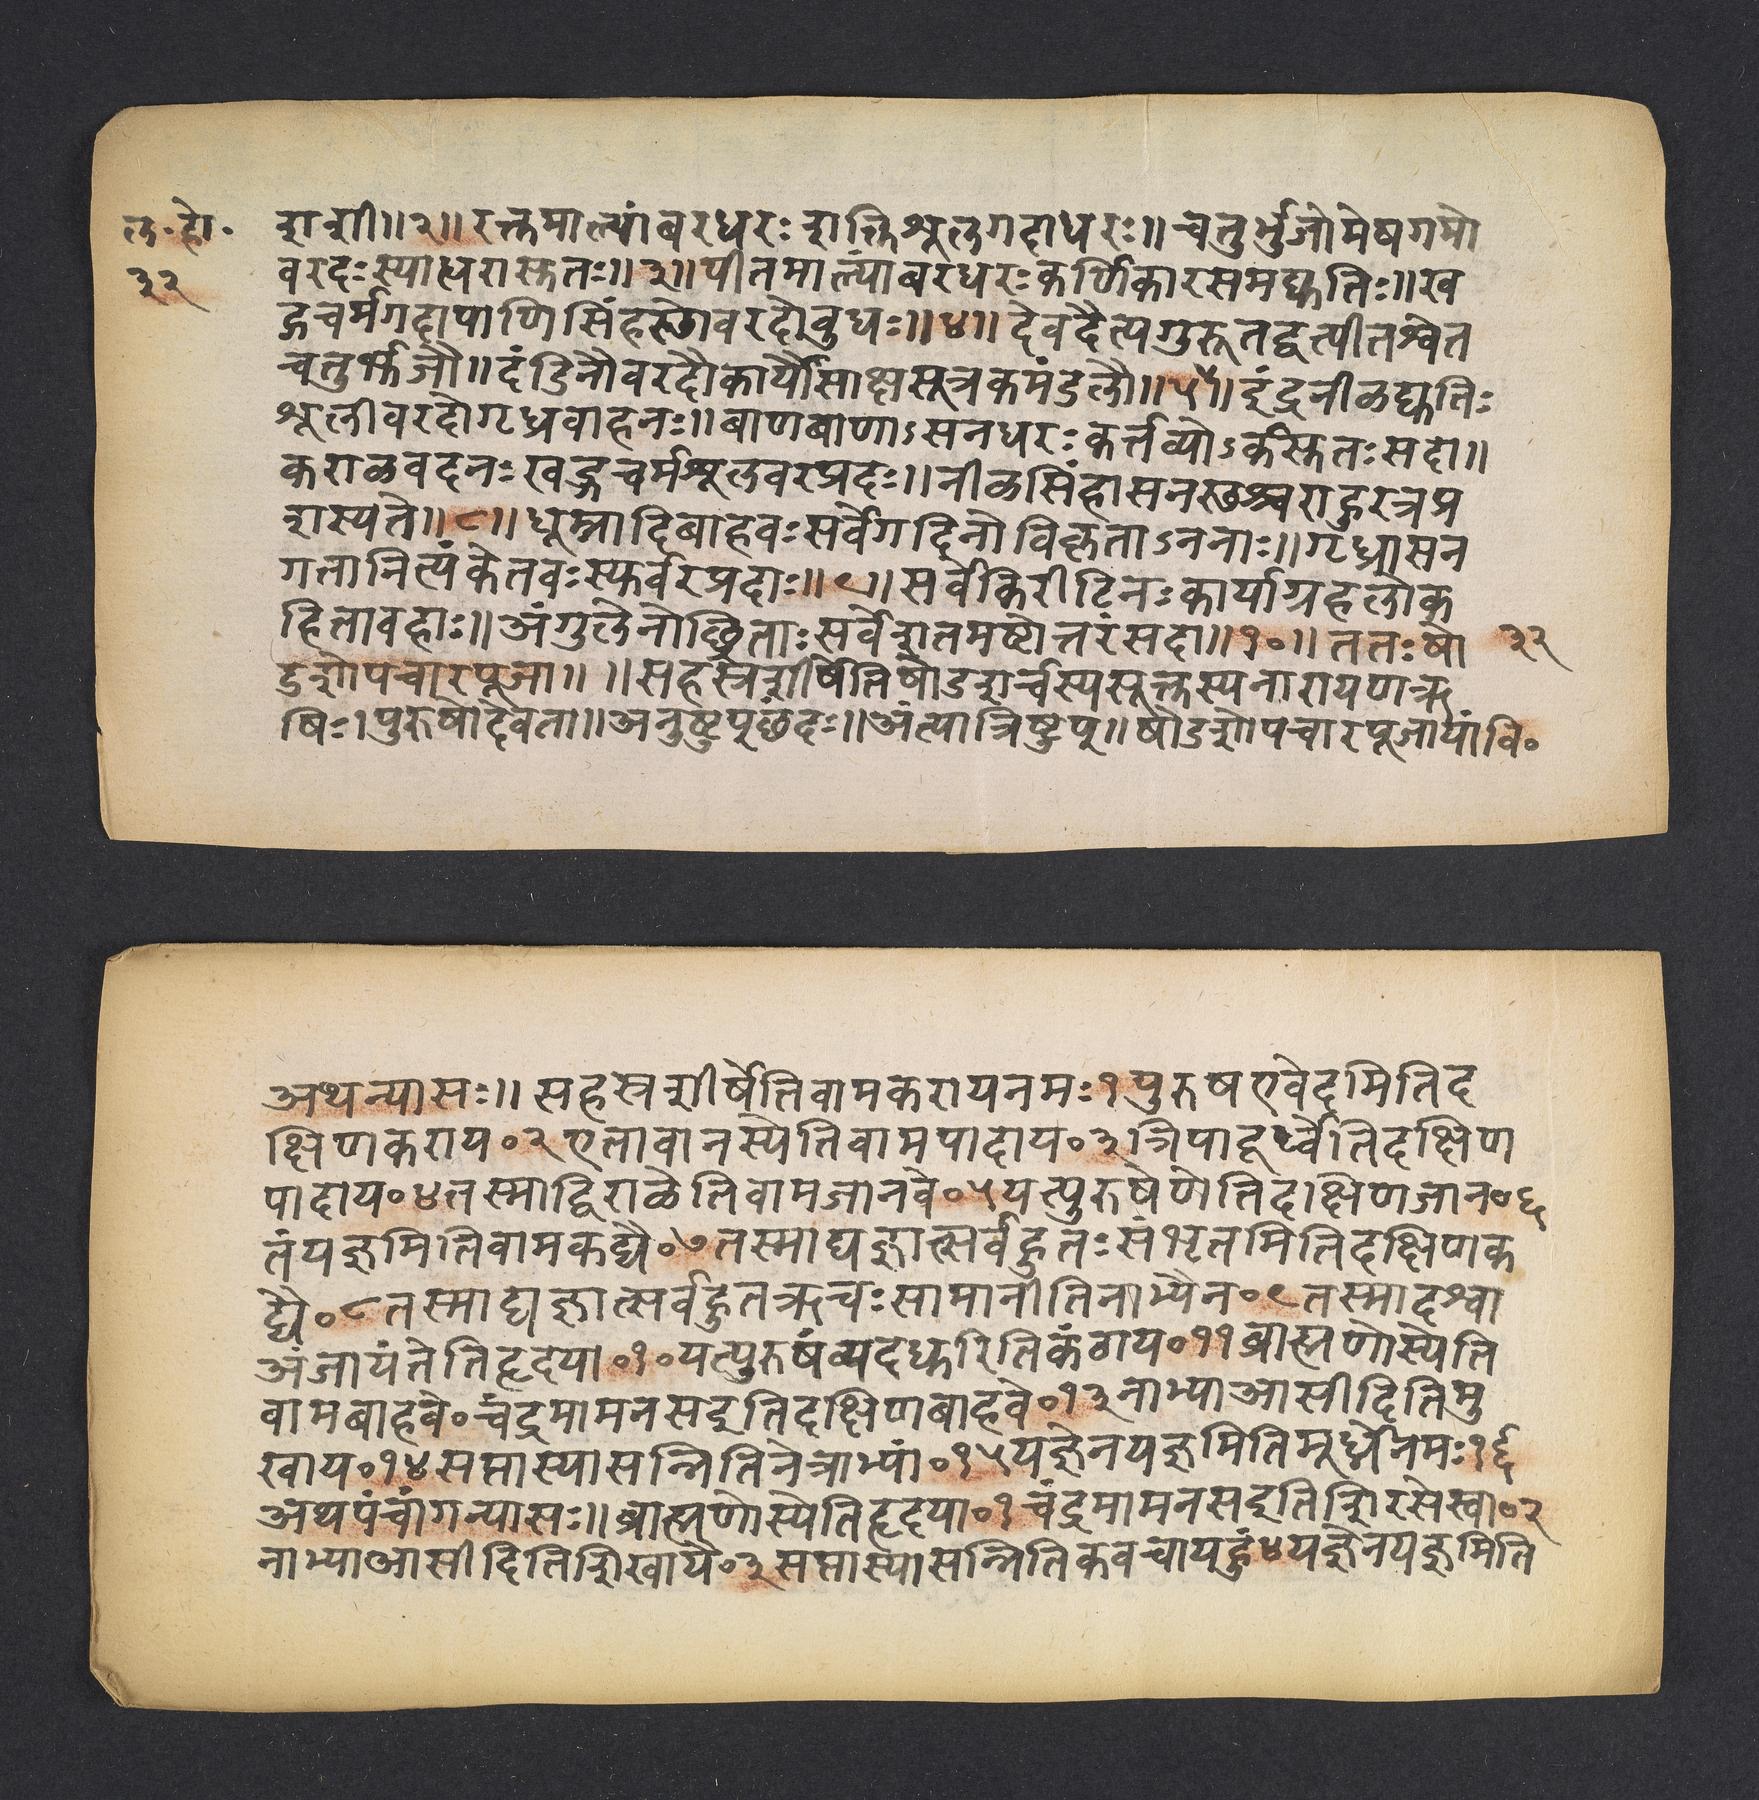 ल॰हो॰
३२
शशी॥२॥रक्तमाल्यांबरधरःशक्तिशूलगदाधरः॥चतुर्भुजोमेषगमो
वरदःस्याद्धरासुतः॥३॥पीतमाल्यांबरधरःकर्णिकारसमद्युतिः॥ख
ड्गचर्मगदापाणिसिंहस्थोवरदोबुधः॥४॥देवदैत्यगुरूतद्वत्पीतश्वेत
चतुर्भुजौ॥दंडिनौवरदौकार्यौसाक्षसूत्रकमंडलौ॥५॥इंद्रनीळद्युतिः
शूलीवरदोगृध्रवाहनः॥बाणबाणाऽसनधरःकर्त्तव्योऽर्कसुतःसदा॥
कराळवदनःखड्गचर्मशूलवरप्रदः॥नीळसिंहासनस्थश्चराहुरत्रप्र
शस्यते॥८॥धूम्रादिबाहवःसर्वेगदिनोविकृताऽननाः॥गृध्रासन
गतानित्यंकेतवःस्फुर्वरप्रदाः॥९॥सर्वेकिरीटिनःकार्याग्रहलोक
हितावहाः॥अंगुलेनोछ्रिताःसर्वेशतमष्टोत्तरंसदा॥१०॥ततःषो
३२
डशोपचारपूजा॥॥सहस्रशीर्षेतिषोडशर्चस्यसूक्तस्यनारायणऋ
षिः।पुरुषोदेवता॥अनुष्टुप्छंदः॥अंत्यात्रिष्टुप्॥षोडशोपचारपूजायांवि॰
अथन्यासः॥सहस्रशीर्षेतिवामकरायनमः१पुरुषएवेदमितिद
क्षिणकराय॰२एतावानस्येतिवामपादाय॰३त्रिपादूर्ध्वेतिदक्षिण
पादाय॰४तस्माद्विराळेतिवामजानवे॰५यत्पुरुषेणेतिदाक्षिणजान॰६
तंयज्ञमितिवामकट्यै॰७तस्माद्यज्ञात्सर्वहुतःसंभृतमितिदक्षिणक
ट्यै॰८तस्माद्यज्ञात्सर्वहुतऋचःसामानीतिनाभ्यैन॰९तस्मादश्वा
अंजायंतेतिहृदया॰१०यत्पुरुषंव्यदधुरितिकंठाय॰११ब्राह्मणोस्येति
वामबाहवे॰चंद्रमामनसइतिदक्षिणबाहवे॰१३नाभ्याआसीदितिमु
खाय॰१४सप्तास्यासन्नितिनेत्राभ्यां॰१५यज्ञेनयज्ञमितिमूर्ध्नेनमः१६
अथपंचांगन्यासः॥ब्राह्मणोस्येतिहृदया॰१चंद्रमामनसइतिशिरसेस्वा॰२
नाभ्याआसीदितिशिखायै॰३सप्तास्यासन्नितिकवचायहुं४यज्ञेनयज्ञमिति